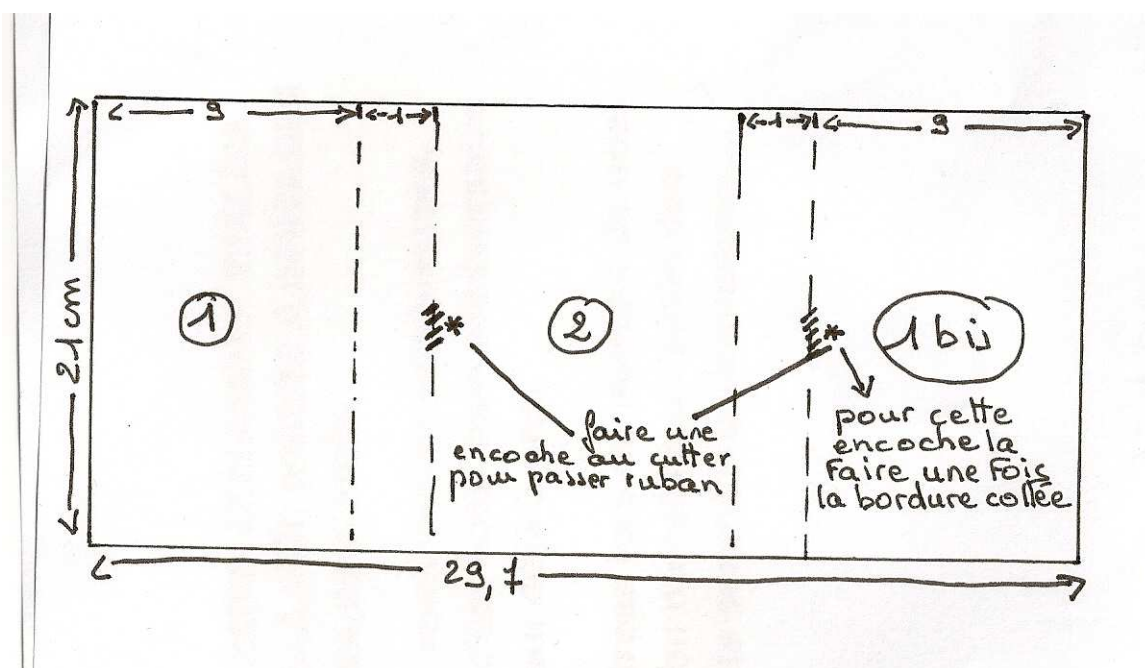 9
1
1
9
21cm
1
*
2
*
1 bis
faire une
encoche au cutter
pour passer ruban
pour cette
encoche la
Faire une Fois
la bordure collée
29,7